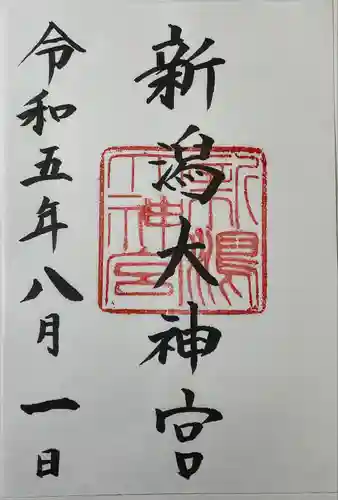 新潟大神宮
令和五年八月一日
新潟大神宮